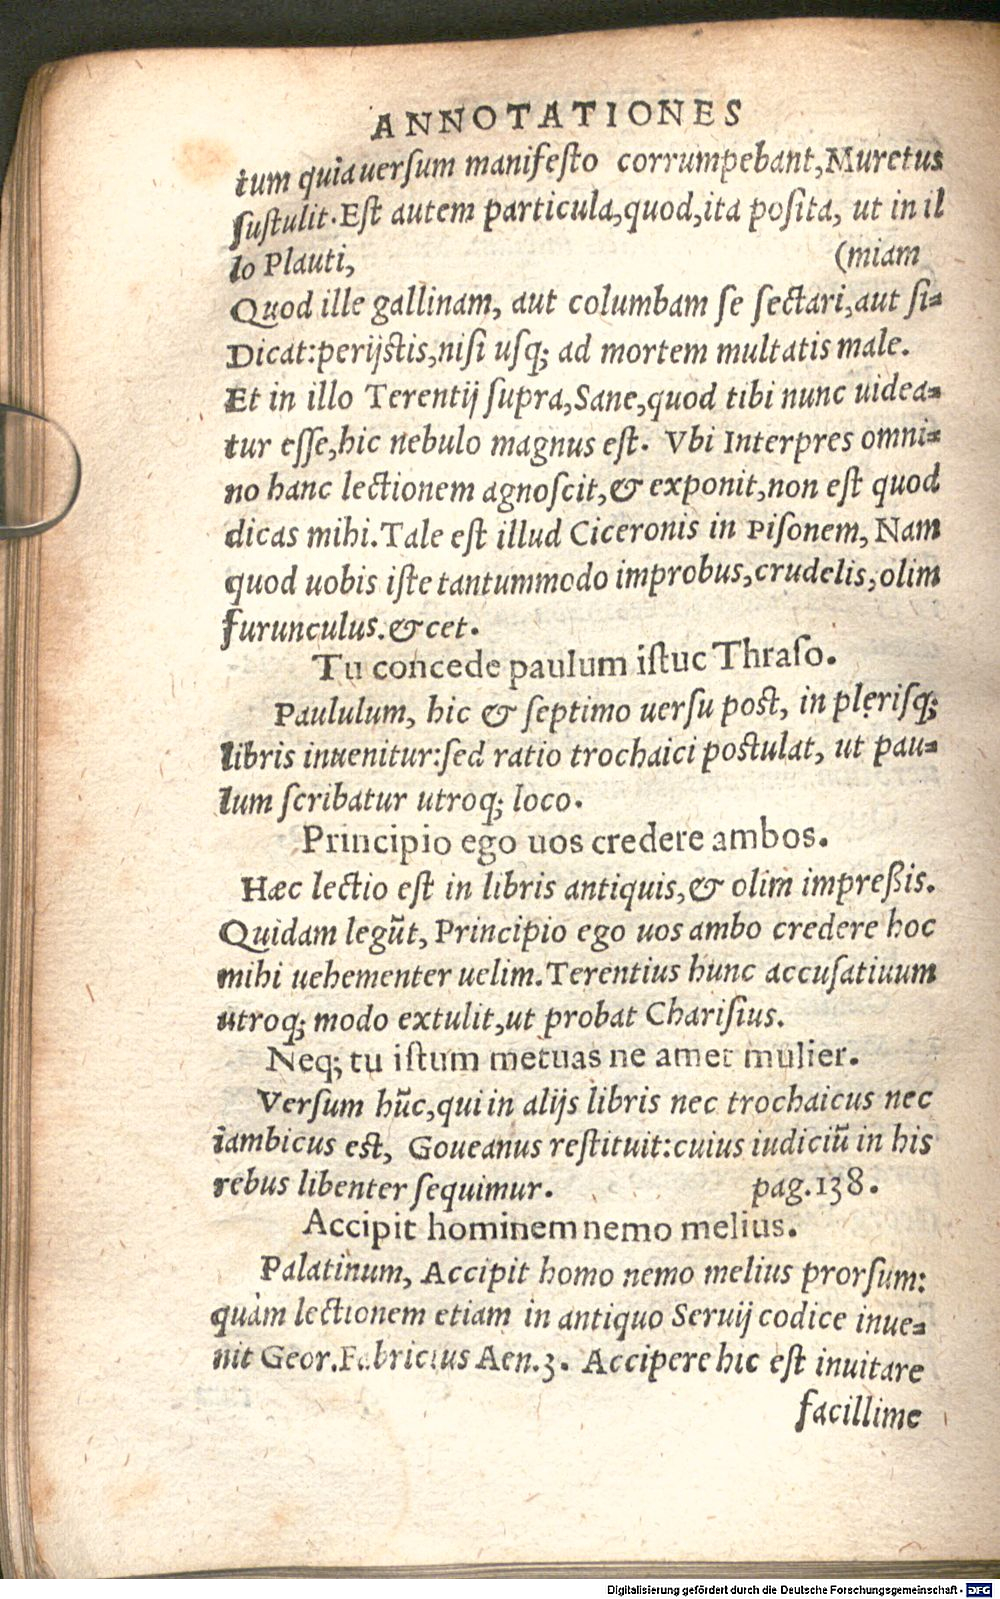 ANNOTATIONES
tum quia uersum manifesto corrumpebant, Muretus
sustulit. Est autem particula, quod, ita posita, ut in il
lo Plauti, (miam
Quod ille gallinam, aut columbam se sectari, aut si-
Dicat: perijstis, nisi usq; ad mortem multatis male.
Et in illo Terentij supra, Sane, quod tibi nunc uidea-
tur esse, hic nebulo magnus est. Vbi Interpres omni-
no hanc lectionem agnoscit, & exponit, non est quod
dicas mihi. Tale est illud Ciceronis in Pisonem, Nam
quod uobis iste tantummodo improbus, crudelis, olim
furunculus. & cet.
Tu concede paulum istuc Thraso.
Paululum, hic & septimo uersu post, in plęrisq;
libris inuenitur: sed ratio trochaici postulat, ut pau-
lum scribatur utroq; loco.
Principio ego uos credere ambos.
Hæc lectio est in libris antiquis, & olim impreßis.
Quidam legūt, Principio ego uos ambo credere hoc
mihi uehementer uelim. Terentius hunc accusatiuum
utroq; modo extulit, ut probat Charisius.
Neq; tu istum metuas ne amet mulier.
Versum hūc, qui in alijs libris nec trochaicus nec
iambicus est, Goueanus restituit: cuius iudiciū in his
rebus libenter sequimur. pag. 138.
Accipit hominem nemo melius.
Palatinum, Accipit homo nemo melius prorsum:
quàm lectionem etiam in antiquo Seruij codice inue-
nit Geor. Fabricius Aen. 3. Accipere hic est inuitare
facillime
Digitalisierung gefördert durch die Deutsche Forschungsgemeinschaft - DFG